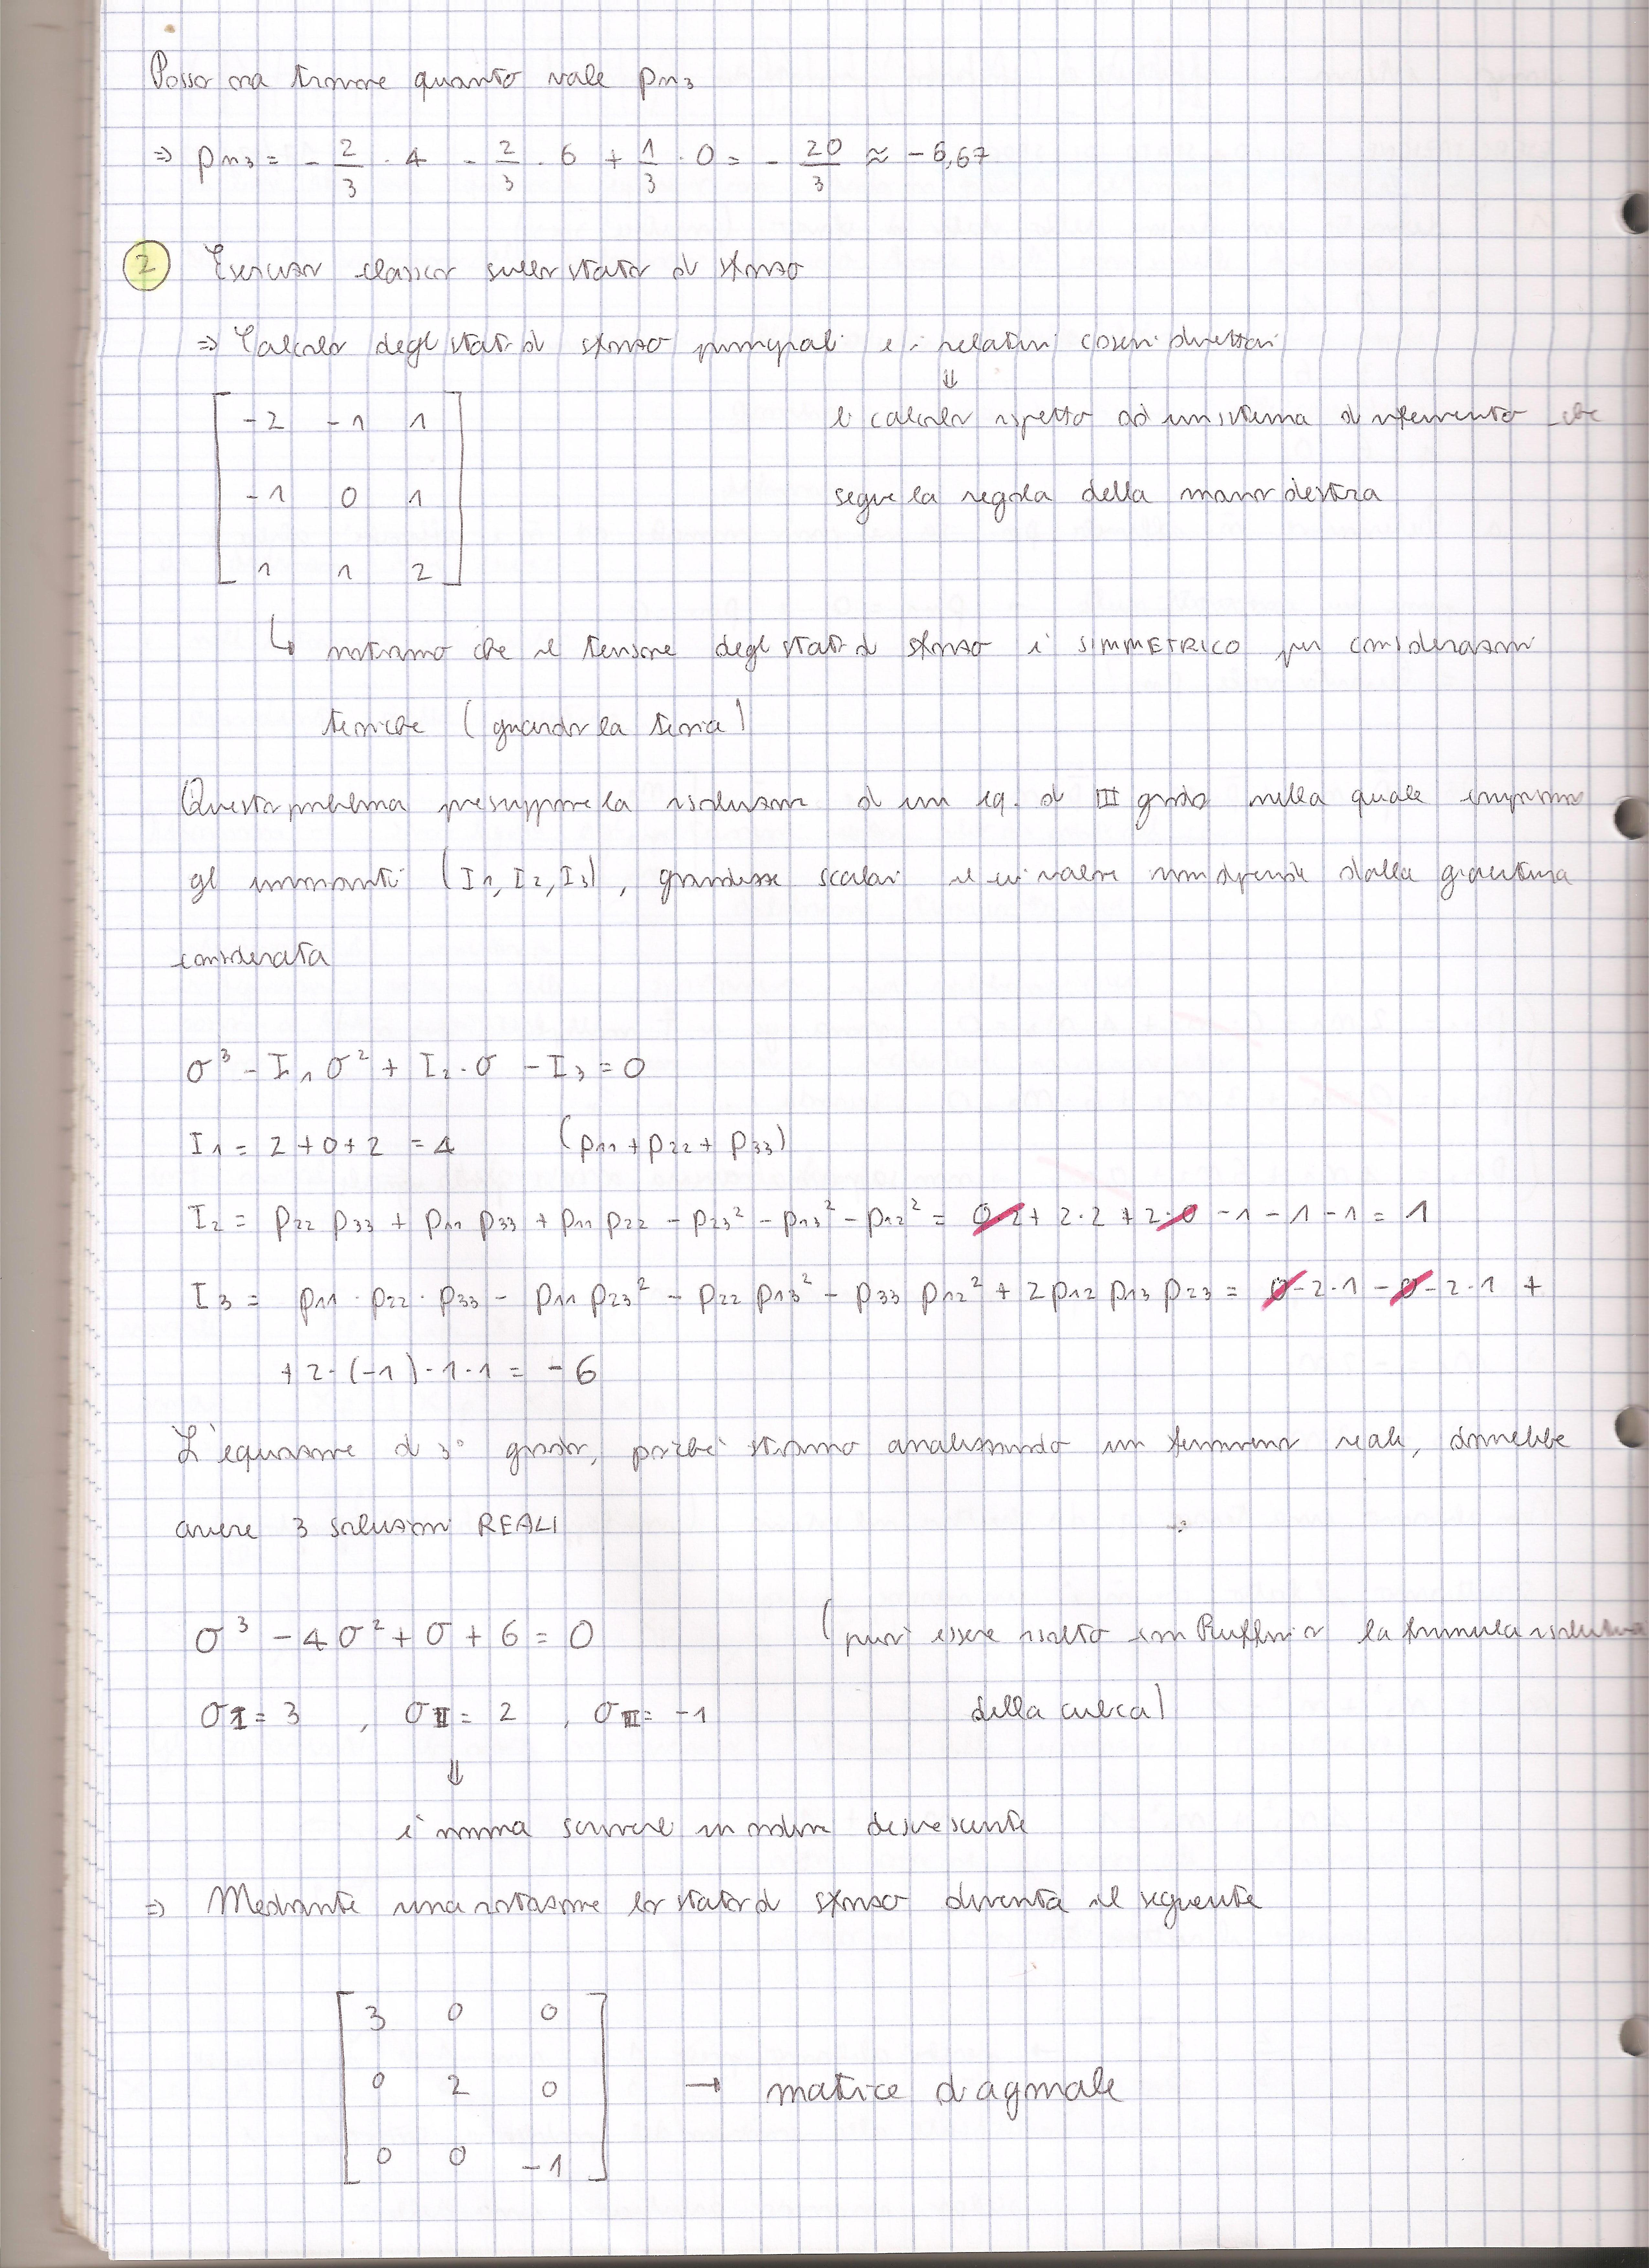 Posso ora trovare quanto vale pn3
⇒ pn3 = - 2/3 · 4 - 2/3 · 6 + 1/3 · 0 = - 20/3 ≈ -6,67
2 Esercizio classico sullo stato di sforzo
⇒ Calcolo degli stati di sforzo principali e i relativi coseni direttori
⇓
-2 -1 1
li calcolo rispetto ad un sistema di riferimento che
-1 0 1
segue la regola della mano destra
1 1 2
↳ notiamo che il tensore degli stati di sforzo è SIMMETRICO per considerazioni
teoriche (guardo la teoria)
Questo problema presuppone la risoluzione di un eq. di III grado nella quale
gli invarianti (I1, I2, I3), grandezze scalari il cui valore non dipende dalla giacitura
considerata
σ³ - I1σ² + I2·σ - I3 = 0
I1 = 2+0+2 = 4 (p11 + p22 + p33)
I2 = p22 p33 + p11 p33 + p11 p22 - p23² - p13² - p12² = 0·2 + 2·2 + 2·0 - 1 - 1 - 1 = 1
I3 = p11 · p22 · p33 - p11 p23² - p22 p13² - p33 p12² + 2p12 p13 p23 = 0 - 2·1 - 0 - 2·1 +
+ 2·(-1)·1·1 = -6
L'equazione di 3° grado, poiché stiamo analizzando un fenomeno reale, dovrebbe
avere 3 soluzioni REALI
σ³ - 4σ² + σ + 6 = 0 (può essere risolto con Ruffini o la formula risolutiva
σI = 3 , σII = 2 , σIII = -1 della cubica)
⇓
è norma scriverle in ordine decrescente
⇒ Mediante una rotazione lo stato di sforzo diventa il seguente
3 0 0
0 2 0 → matrice diagonale
0 0 -1